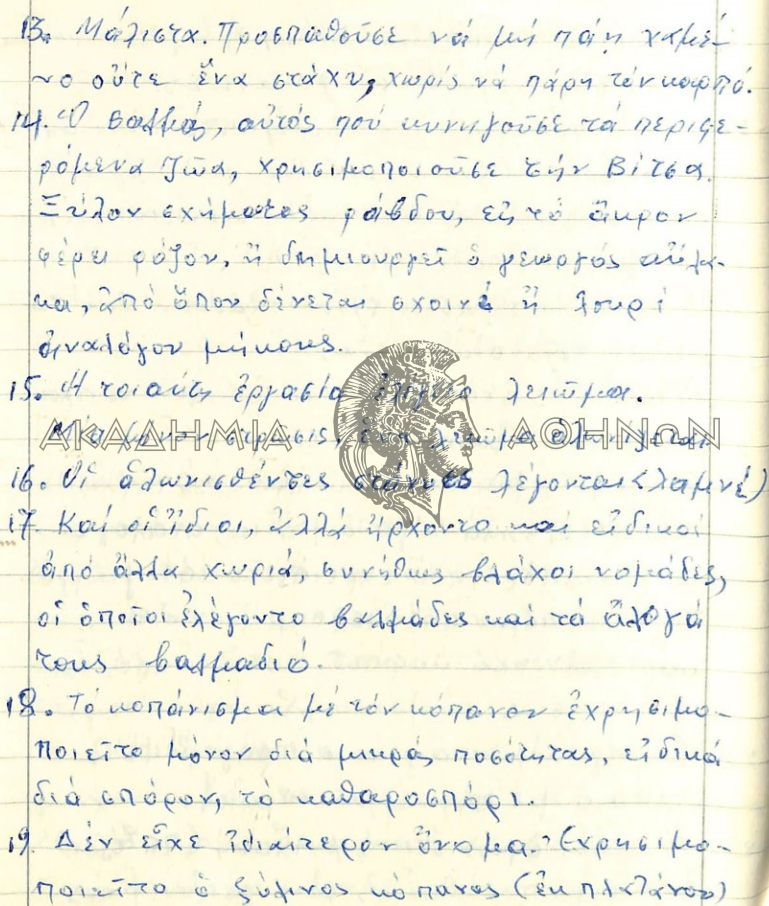 13. Μάλιστα. Προσπαθοῦσε νά μή πάη χαμέ-
νο οὔτε ἕνα στάχυ, χωρίς νά πάρη τόν καρπό.
14. Ὁ βαλμάς, αὐτός πού κυνηγοῦσε τά περιφε-
ρόμενα ζῶα, χρησιμοποιοῦσε τήν Βίτσα.
Ξύλον σχήματος ράβδου, εἰς τό ἄκρον
φέρει ρόζον, ἤ δημιουργεῖ ὁ γεωργός αὔλα-
κα, ἀπό ὅπου δένεται σχοινί ἤ λουρί
ἀναλόγου μήκους.
15. Ἡ τοιαύτη ἐργασία ἐλέγετο λειῶμα.
ΑΚΑΔΗΜΙΑ ΑΘΗΝΩΝ
Μία μόνον στρῶσις, ἕνα λειῶμα
16. Οἱ ἁλωνισθέντες στάχυες λέγονται (λαμνέ)
17. Καί οἱ ἴδιοι, ἀλλά ἤρχοντο καί εἰδικοί
ἀπό ἄλλα χωριά, συνήθως βλάχοι νομάδες,
οἱ ὁποῖοι ἐλέγοντο βαλμάδες καί τά ἄλογά
τους βαλμαδιό.
18. Τό κοπάνισμα μέ τόν κόπανον ἐχρησιμο-
ποιεῖτο μόνον διά μικράς ποσότητας, εἰδικά
διά σπόρον, τό καθαροσπόρι.
19. Δέν εἶχε ἰδιαίτερον ὄνομα. Ἐχρησιμο-
ποιεῖτο ὁ ξύλινος κόπανος (ἐκ πλατάνου)